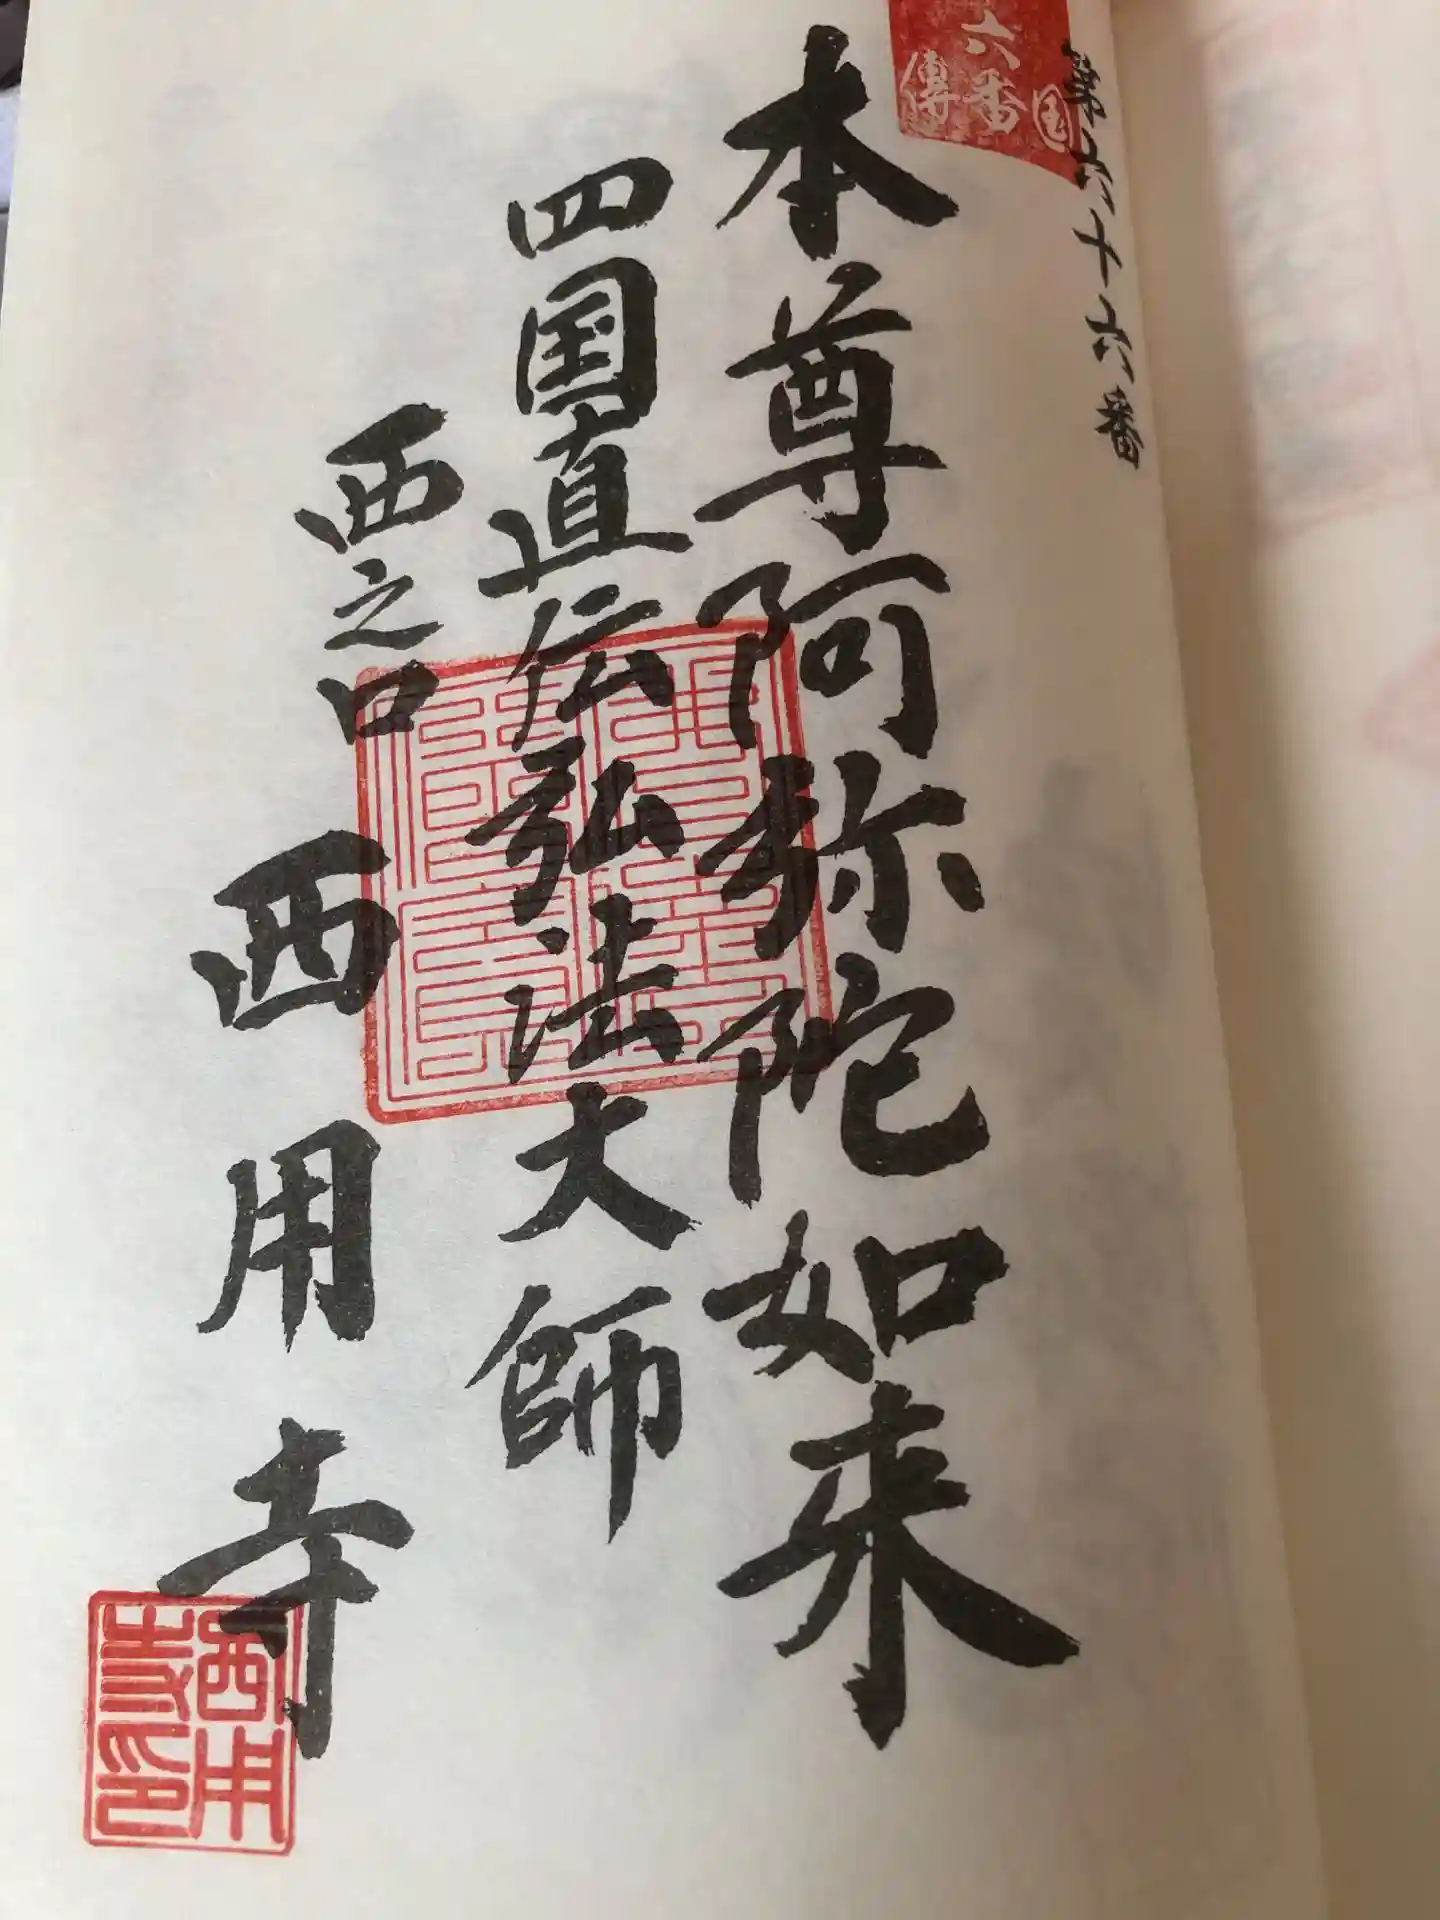 第六十六番
六番
傳
国
本尊阿弥陀如来
四国直伝弘法大師
西之口
西用寺
西用
寺印